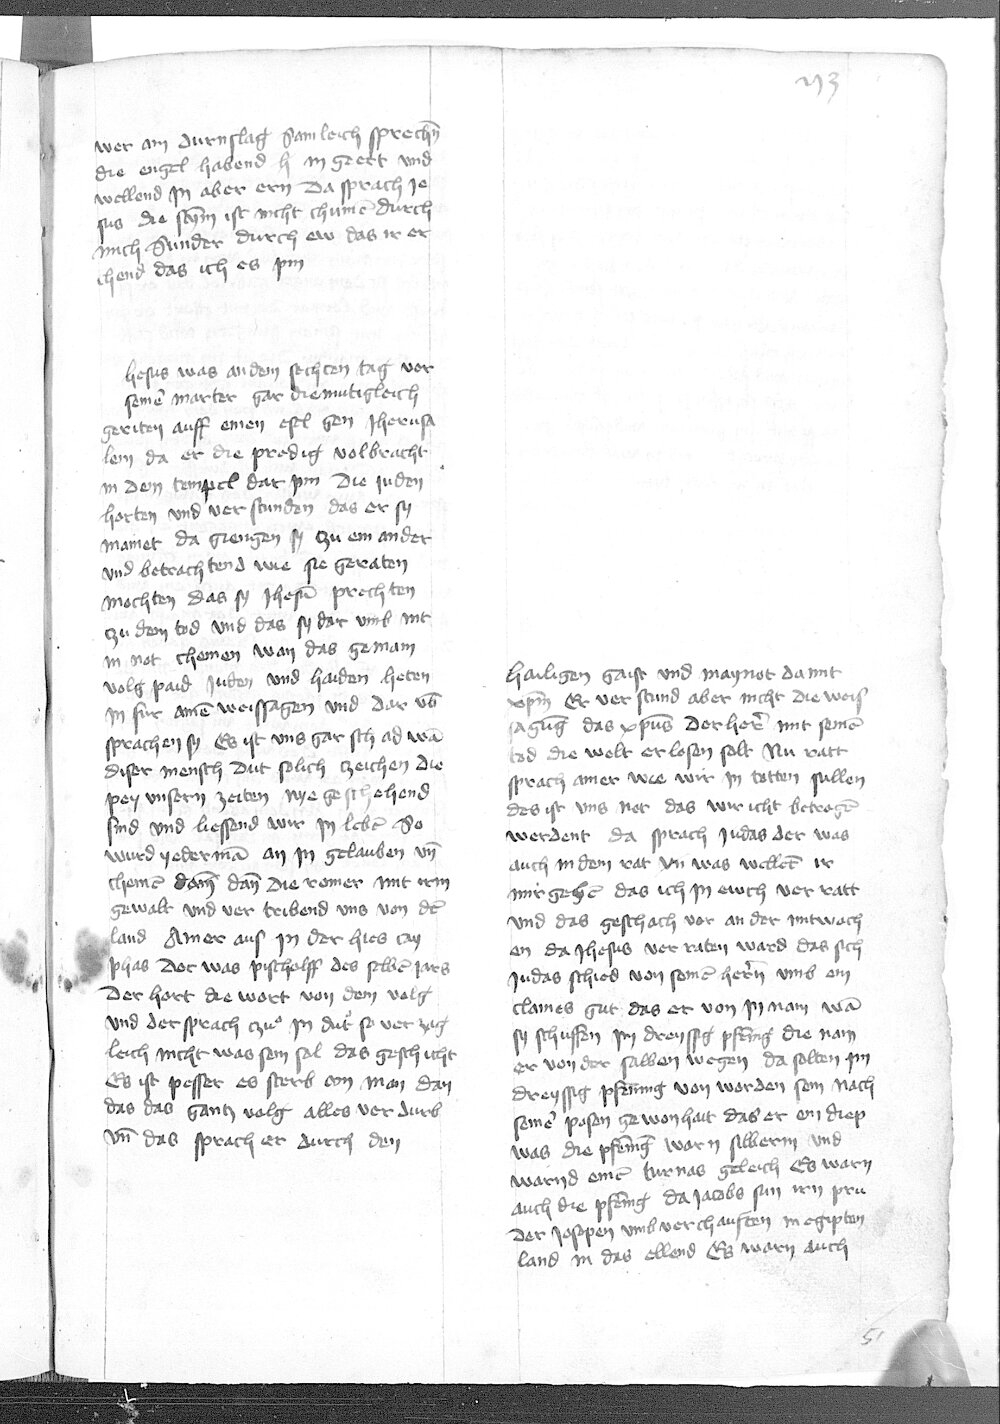 wer am durnslag Samleich sprechn̄
die engel habend h̄ in geert vnd
wellend Jn aber ern Da sprach Je
sus die stȳm ist nicht chumē durch
mich Sunder durch ew das ir er
chend das ich es pin
hesus was an dem sechten tag vor
semē marter gar diemutigleich
geriten auff einen esel gen Jherusa
lem da er die predig volbracht
in dem tempel dar pm Die juden
horten vnd verstunden das er sy
mainet da giengen sy czu ein ander
vnd betrachtend wie sie geraten
mochten das sy Jhesū prechten
czu dem tod vnd das sy dar vmb nit
in not chomen wan das gemain
volg paid Juden vnd haiden heten
In fur ainē weissagen vnd dar vb̄
sprachen sy Es ist vns gar schad wā
diser mensch dut solich czeichen die
pey vnsern zeiten nye geschehend
sind vnd liessend wir jn lebē So
wurd yederman̄ an jn gelauben vn̄
chomē dan̄ die romer mit irm
gewalt vnd vertribend vns von dē
land Ainer aus jn der hies cay
phas Der was pischolff des selbē jars
Der hort die wort von dem volg
vnd der sprach czu jn dut so verzag
leich nicht was sein sol das geschicht
Es ist pesser es sterb ain man dan
das das gantz volg alles verdurb
vn̄ das sprach er durch den
hailigen gaist vnd maynot da mit
xpm̄ Er verstund aber nicht die weis
sagūg das xpūs der herr̄ mit seinē
tod die welt erlosen solt Nu ratt
sprach ainer wie wir jn totten sullen
des ist vns not das wir icht betrogē
werdent da sprach Judas der was
auch in dem rat vn̄ was wellet ir
mir gebē das ich jn ewch verratt
vnd das geschach vor an der mitwoch
en da Jhesus verraten ward das sich
Judas schied von seinē herrn̄ vmb ein
claines gut das er von jn nam wā
sy schuffen jm dreyssig pfenīg die nam
er von der salben wegen da solten jm
dreyssig pfennīg von worden sein nach
seinē posen gewonhait das er ein diep
was die pfenīg warn silberin vnd
warnd einē turnas geleich Es warn
auch die pfenīg da Jacobs sun irn pru
der Josepen vmb verchauften in egipten
land in das ellend Es warn auch